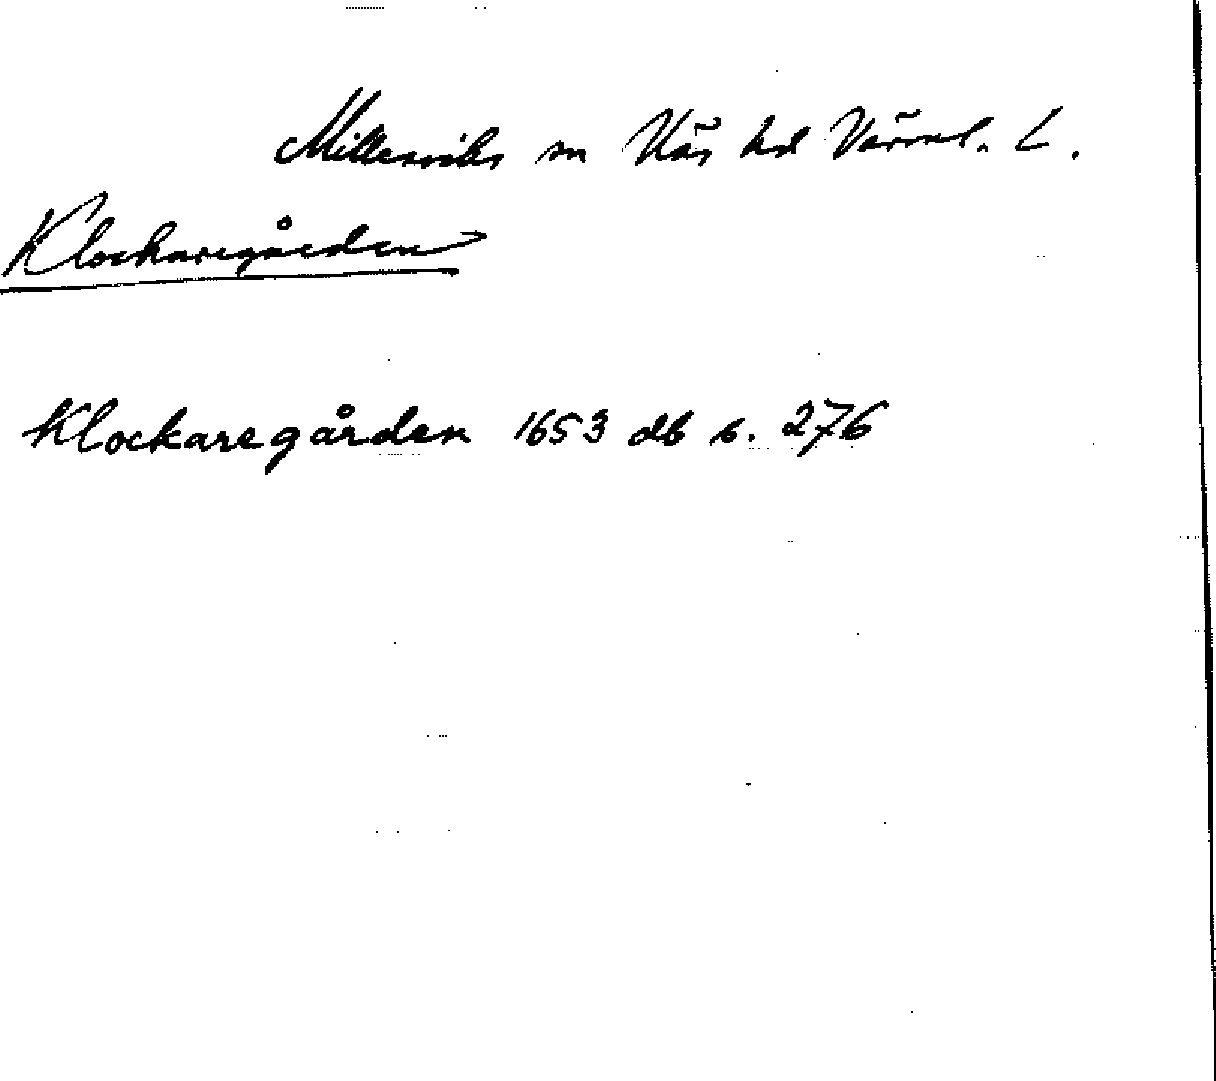 Millesviks sn Näs hd Värml. L.
Klockaregården
Klockaregården 1653 db s. 276